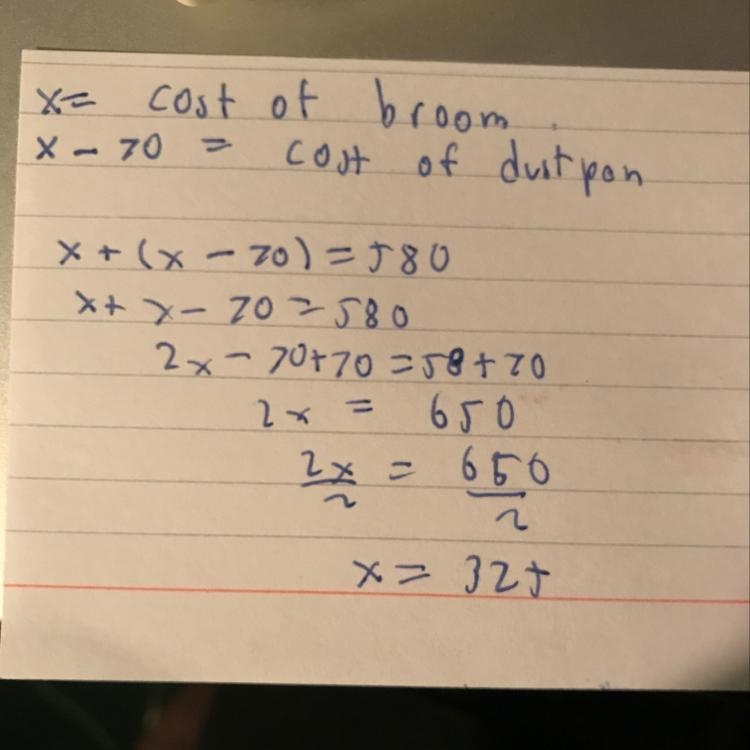 x = cost of broom.
x - 70 = cost of dustpan
x + (x - 70) = 580
x + x - 70 = 580
2x - 70 + 70 = 58 + 70
2x = 650
2x/2 = 650/2
x = 325